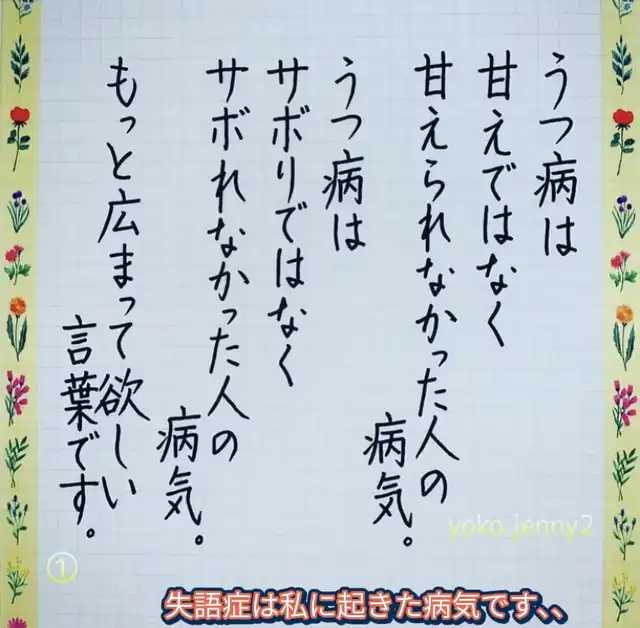 うつ病は
甘えではなく
甘えられなかった人の
病気。
うつ病は
サボりではなく
サボれなかった人の
病気。
もっと広まって欲しい
言葉です。
yoko_jenny2
①
失語症は私に起きた病気です、、